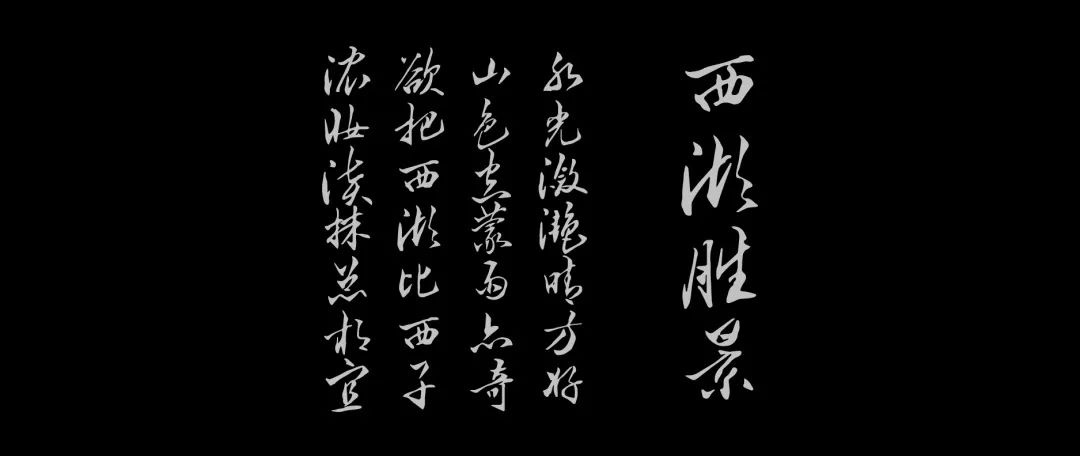 西湖胜景
水光潋滟晴方好
山色空蒙雨亦奇
欲把西湖比西子
浓妆淡抹总相宜